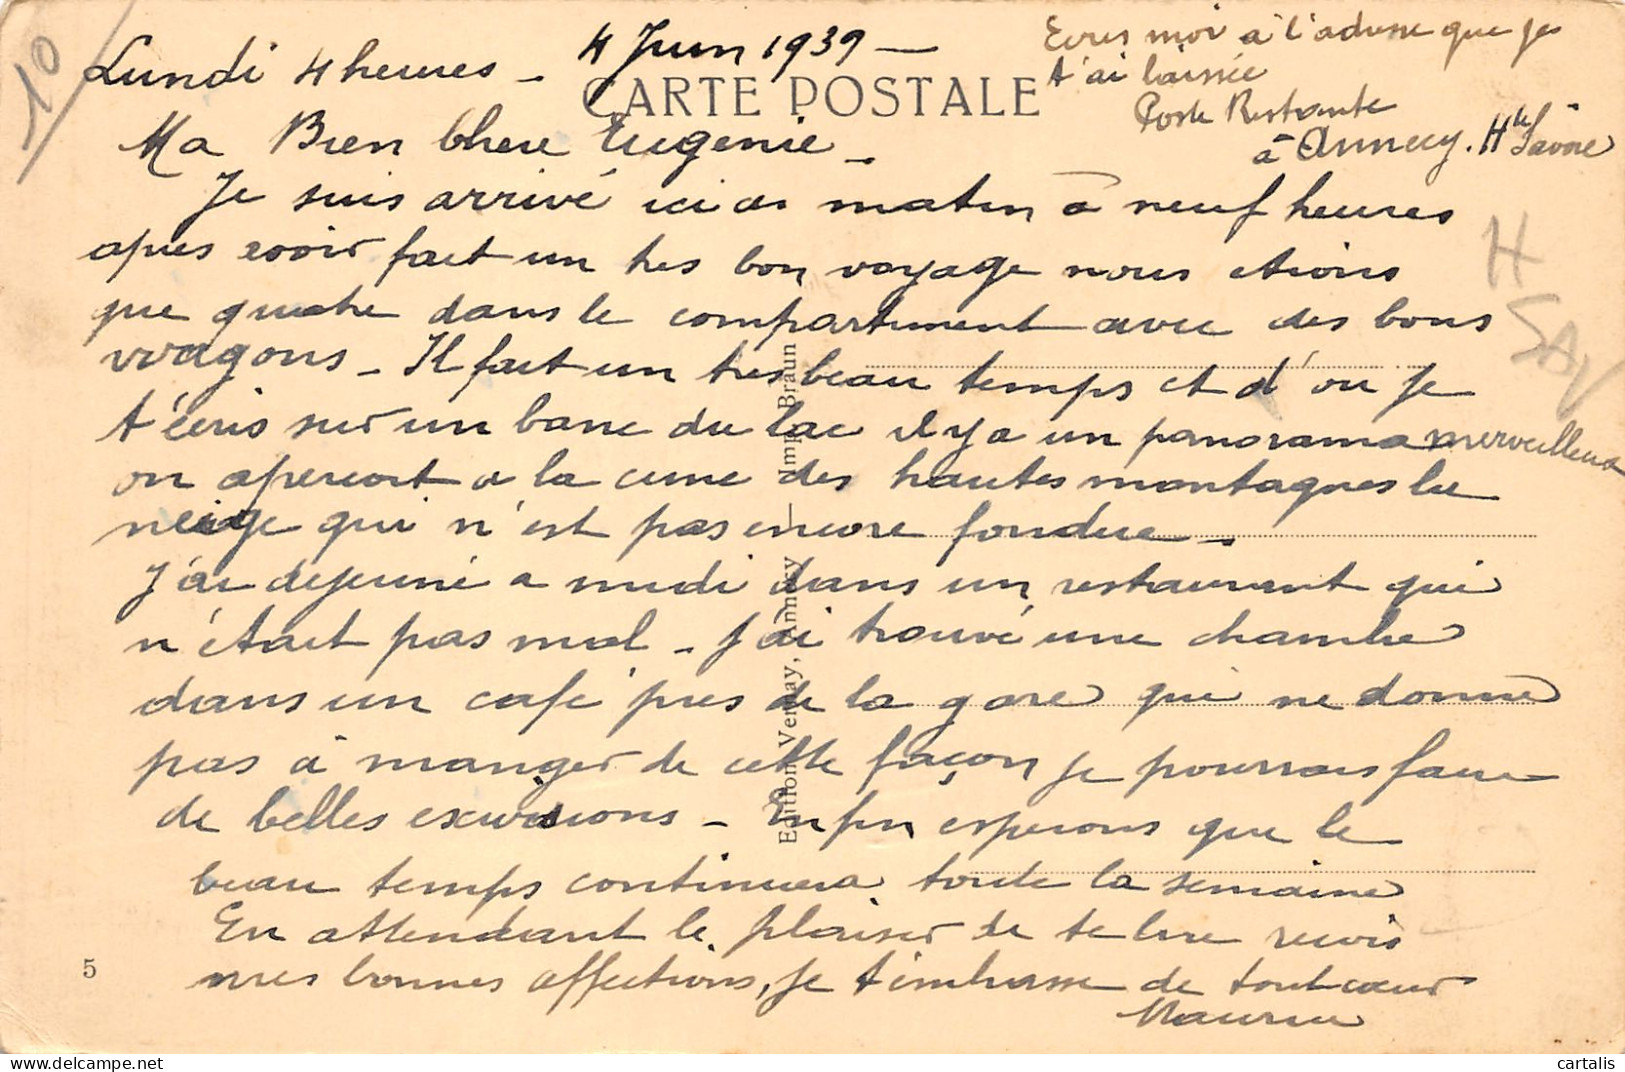 10
Lundi 4 heures - 4 Juin 1939 -
CARTE POSTALE
Ecris moi à l'adresse que je
t'ai laissée
Poste Restante
à Annecy. Hte Savoie
Ma Bien Chere Eugenie -
Je suis arrivé ici ce matin à neuf heures
apres avoir fait un tres bon voyage nous etions
que quatre dans le compartiment avec des bons
wagons - Il fait un tres beau temps et d'ou je
t'écris sur un banc du lac il y a un panorama merveilleux
on apercoit a la cime des hautes montagnes la
neige qui n'est pas encore fondue -
J'ai dejeuné a midi dans un restaurant qui
n'était pas mal - J'ai trouvé une chambre
dans un café pres de la gare qui ne donne
pas à manger de cette façon je pourrais faire
de belles excursions - Enfin esperons que le
beau temps continuera toute la semaine
En attendant le plaisir de te lire recois
mes bonnes affections, je t'embrasse de tout cœur
Maurice
H
SAV
Edition Vernay, Annecy — Imp. Braun
5
cartalis